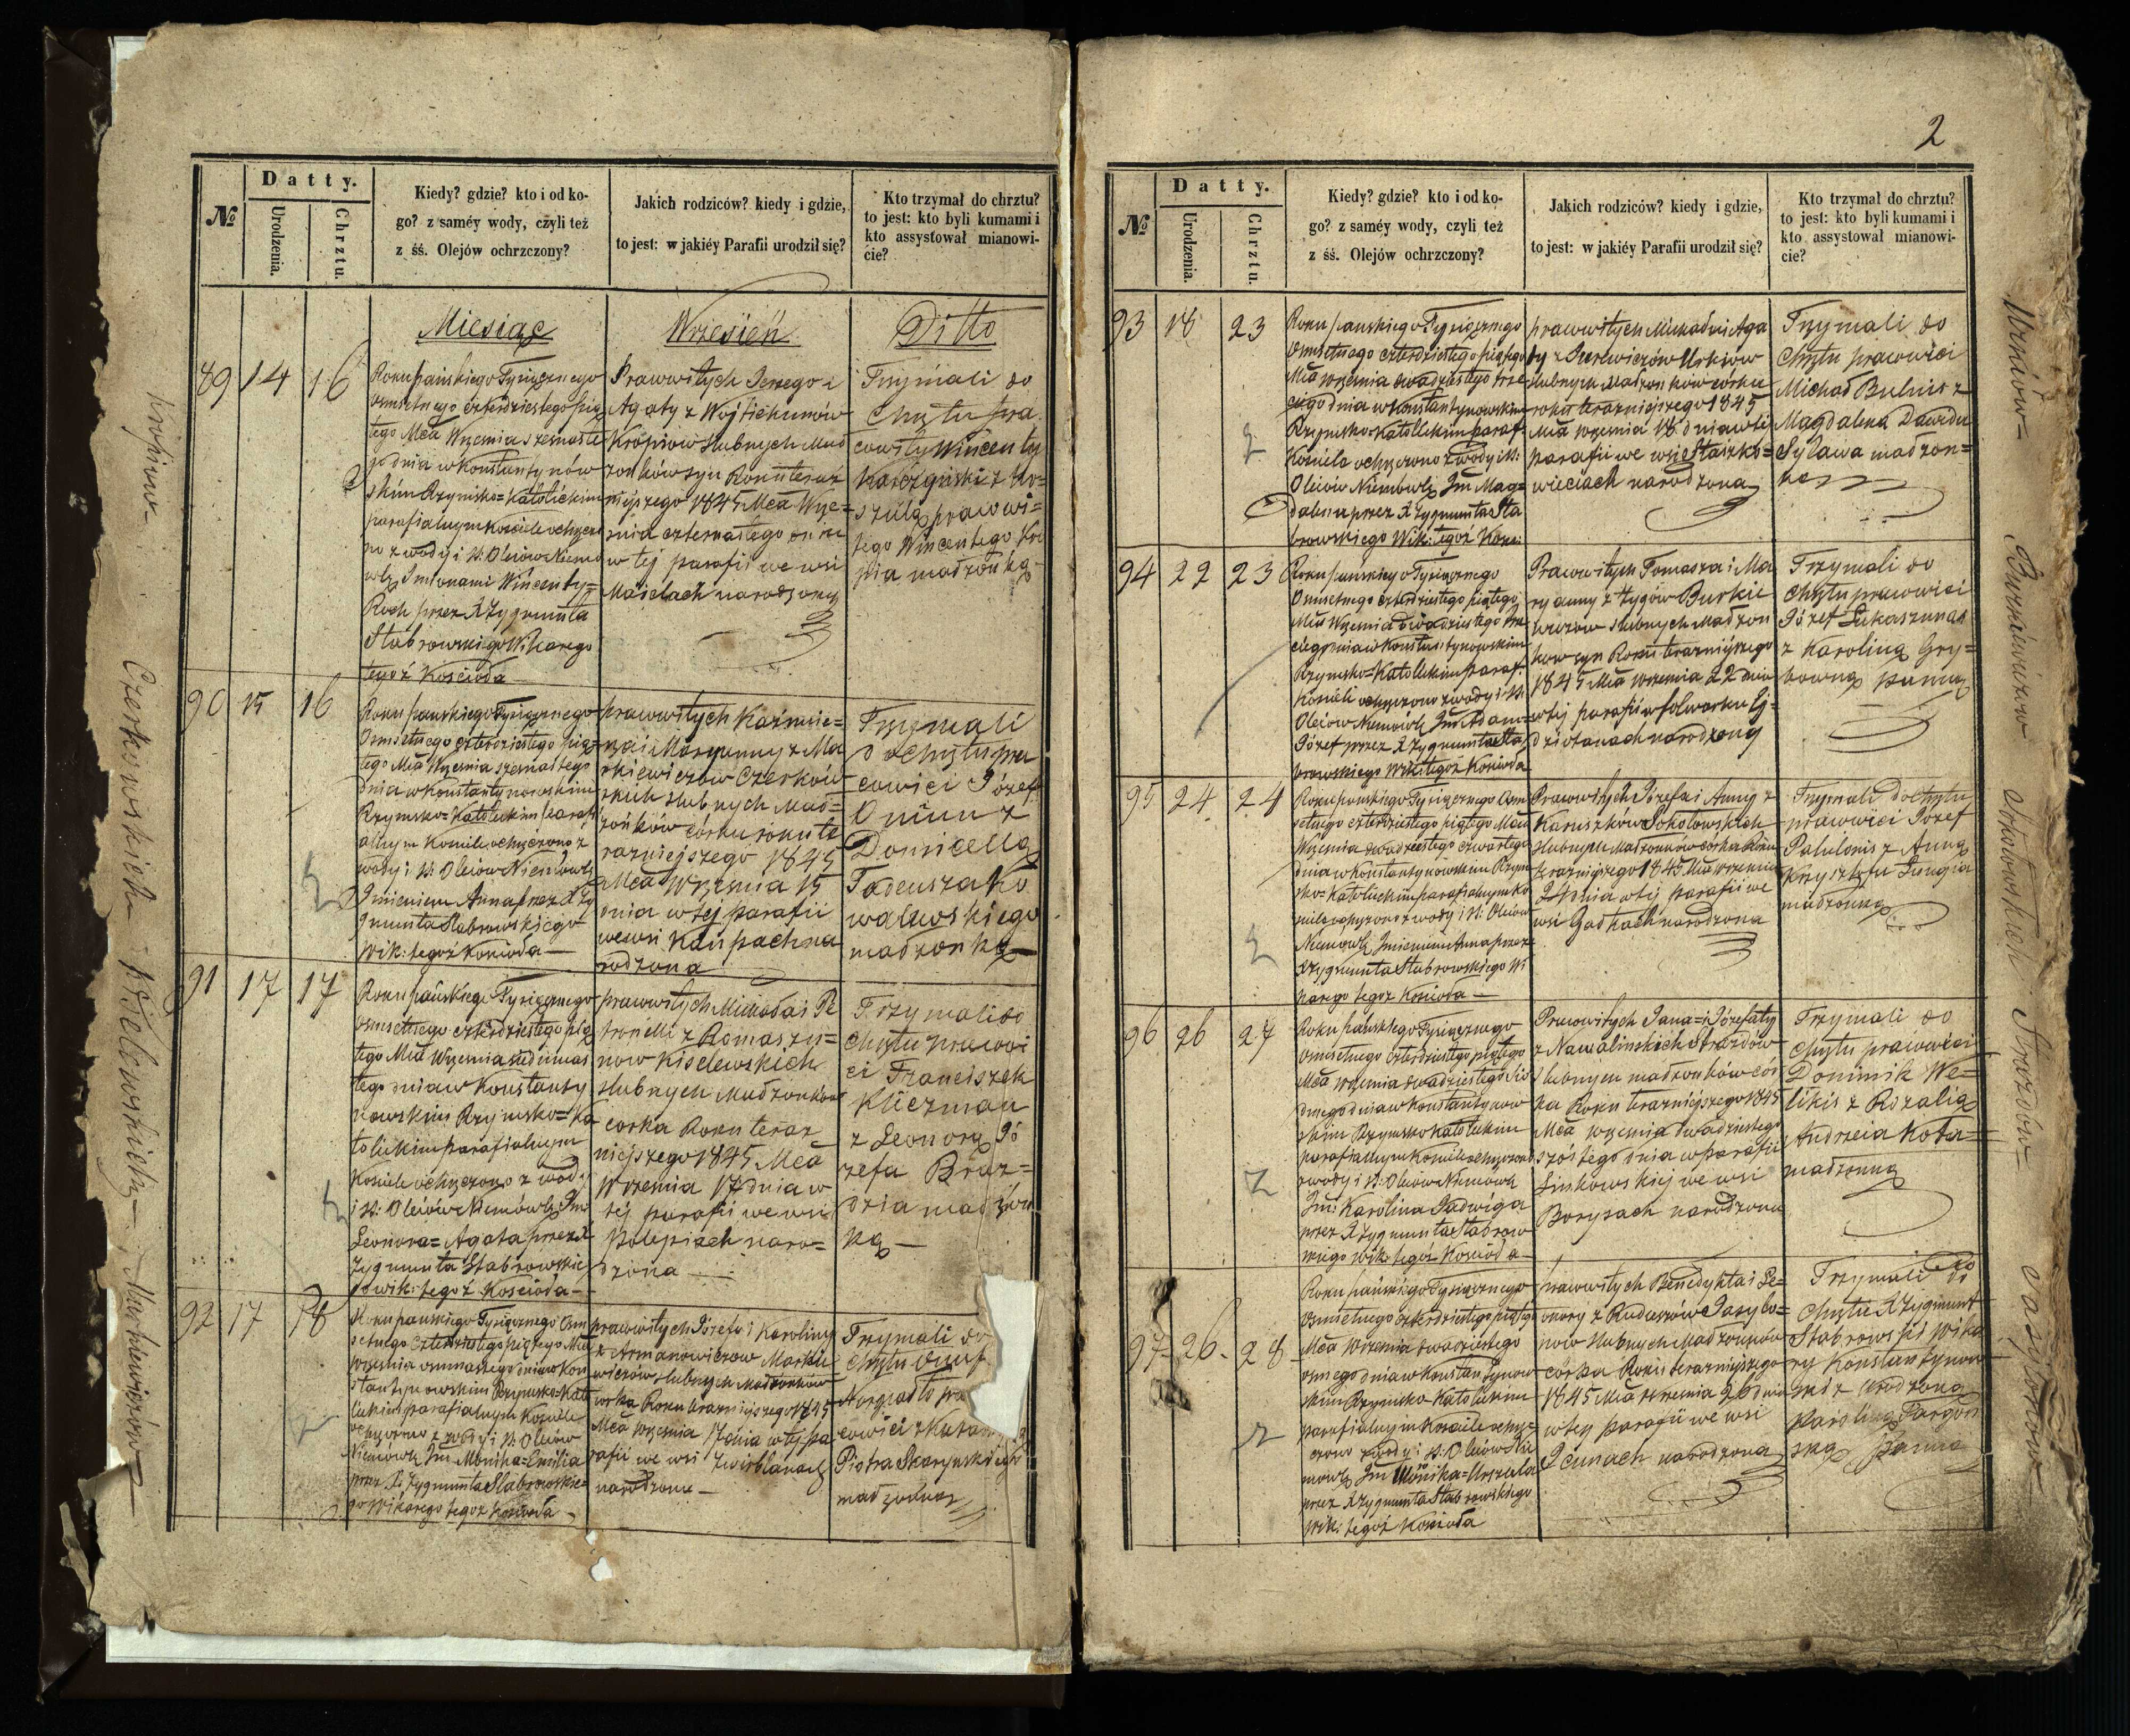 2
№
Datty.
Urodzenia.
Chrztu.
Kiedy? gdzie? kto i od ko-
go? z saméy wody, czyli też
z śś. Olejów ochrzczony?
Jakich rodziców? kiedy i gdzie,
to jest: w jakiéy Parafii urodził się?
Kto trzymał do chrztu?
to jest: kto byli kumami i
kto assystował mianowi-
cie?
Miesiąc
Wrzesień
Ditto
89
14
16
Roku pańskiego Tysiącznego
osmsetnego czterdziestego pią
tego Mca Wrzesnia szesnaste
go dnia w Konstantynów
skim Rzymsko=Katolickim
parafialnym Kosciele ochrzczo
no z wody i SS: Olejów Niemo
wlę Imionami Wincenty=
Roch przez X Zygmunta
Stabrowskiego Wikarego
tegoż Koscioła
Prawowitych Jerzego i
Agaty z Wojtiekunów
Kropiów slubnych Mał
żonków syn Roku teraz
niejszego 1845 Mca Wrze=
snia czternastego dnia
w tej parafii we wsi
narodzony
Trzymali do
Chrztu pra
cowity Wincenty
z Ur=
szulą prawowi=
tego Wincentego Kro
pia małżonką
90
15
16
Roku pańskiego Tysiącznego
Osmsetnego czterdziestego pią=
tego Mca Wrzesnia szesnastego
dnia w Konstantynowskim
Rzymsko=Katolickim parafi
alnym Kosciele ochrzczono z
wody i SS: Olejów Niemowlę
Imieniem Anna przez X Zy
gmunta Stabrowskiego
Wik: tegoż Koscioła
prawowitych Kaźmie=
rza i Maryanny z Ma
rkiewiczów Czerków
skich slubnych Mał=
żonków córka roku te
razniejszego 1845
Mca Wrzesnia 15
dnia w tej parafii
we wsi na
rodzona
Trzymali
do Chrztu pra
cowici Józef
z
Domicellą
Tadeusza Ko
walewskiego
małżonką
91
17
17
Roku pańskiego Tysiącznego
osmsetnego czterdziestego pią
tego Mca Wrzesnia siedmnas
tego dnia w Konstanty
nowskim Rzymsko=Ka
tolickim parafialnym
Kosciele ochrzczono z wody
i SS: Olejów Niemowlę Im:
Leonora=Agata przez X
Zygmunta Stabrowskie
go Wik: tegoż Koscioła
prawowitych Michała i Pe
tronelli z Romaszu=
now Kislewskich
slubnych Małżonków
corka Roku teraz
niejszego 1845 Mca
Wrzesnia 17 dnia w
tej parafii we wsi
Polepiach naro=
dzona
Trzymali do
Chrztu pracowi
ci Franciszek
Kliczman
z Leonorą Jó
zefa
małżon
ką
92
17
18
Roku pańskiego Tysiącznego Osm
setnego czterdziestego piątego Mca
Wrzesnia osmnastego dnia w Kon
stantynowskim Rzymsko=Kato
lickim parafialnym Kosciele
ochrzczono z wody i SS: Olejów
Niemowlę Im: Monika=Emilia
przez X Zygmunta Stabrowskie=
go Wikarego tegoż Koscioła
prawowitych Józefa i Karoliny
z Armanowiczow Markie
wiczów slubnych Małżonków
corka Roku terazniejszego 1845
Mca Wrzesnia 17 dnia w tej pa
rafii we wsi Zwirblanach
narodzona
Trzymali do
Chrztu
cowici z
Piotra Skarynskiego
małżonką
Kropiow
Czerkowskich
Kislewskich
Markiewiczów
№
Datty.
Urodzenia.
Chrztu.
Kiedy? gdzie? kto i od ko-
go? z saméy wody, czyli też
z śś. Olejów ochrzczony?
Jakich rodziców? kiedy i gdzie,
to jest: w jakiéy Parafii urodził się?
Kto trzymał do chrztu?
to jest: kto byli kumami i
kto assystował mianowi-
cie?
93
18
23
Roku pańskiego Tysiącznego
Osmsetnego czterdziestego piątego
Mca Wrzesnia dwadziestego trze
ciego dnia w Konstantynowskim
Rzymsko=Katolickim paraf:
Kosciele ochrzczono z wody i SS:
Olejów Niemowlę Im: Mag=
dalena przez X Zygmunta Sta
browskiego Wik: tegoż Kosc:
prawowitych Michała i Aga
ty z Urniów
slubnych Małżonków corka
roku terazniejszego 1845
Mca Wrzesnia 18 dnia w tej
parafii we wsi Staszko=
wieciach narodzona
Trzymali do
Chrztu pracowici
Michał z
Magdaleną Dawida
Sylawa małżon=
ką
94
22
23
Roku pańskiego Tysiącznego
Osmsetnego czterdziestego piątego
Mca Wrzesnia dwadziestego trze
ciego dnia w Konstantynowskim
Rzymsko=Katolickim paraf:
Kosciele ochrzczono z wody i SS:
Olejow Niemowlę Im: Adam=
Józef przez X Zygmunta Sta
browskiego Wik: tegoż Koscioła
Prawowitych Tomasza i Ma
ryanny z Zygów
slubnych Małżon
kow syn Roku terazniejszego
1845 Mca Wrzesnia 22 dnia
w tej parafii w folwarku
narodzony
Trzymali do
Chrztu pracowici
Józef Łukaszunas
z Karoliną Gry=
bowną panną
95
24
24
Roku pańskiego Tysiącznego Osm
setnego czterdziestego piątego Mca
Wrzesnia dwadziestego czwartego
dnia w Konstantynowskim Rzym
sko=Katolickim parafialnym Ko
sciele ochrzczono z wody i SS: Olejów
Niemowlę Imieniem Anna przez
X Zygmunta Stabrowskiego Wi
karego tegoż Koscioła
Prawowitych Józefa i Anny z
Karuszków Sokołowskich
slubnych Małżonków córka Roku
terazniejszego 1845 Mca Wrzesnia
24 dnia w tej parafii we
wsi narodzona
Trzymali do Chrztu
pracowici Józef
Palulonis z Anną
Krysztofa
małżonką
96
26
27
Roku pańskiego Tysiącznego
osmsetnego czterdziestego piątego
Mca Wrzesnia dwadziestego sió
dmego dnia w Konstantynow
skim Rzymsko Katolickim
parafialnym Kosciele ochrzczono
z wody i SS: Olejów Niemowlę
Im: Karolina Jadwiga
przez X Zygmunta Stabrow
skiego Wik: tegoż Koscioła
Prawowitych Jana i Józefaty
z Nawalinskich Strazdów
slubnych małżonków cór
ka Roku terazniejszego 1845
Mca Wrzesnia dwadziestego
szóstego dnia w parafii
Linkowskiej we wsi
Borysach narodzona
Trzymali do
Chrztu pracowici
Dominik We=
likis z Rozalią
Andrzeja
małżonką
97
26
28
Roku pańskiego Tysiącznego
Osmsetnego czterdziestego piątego
Mca Wrzesnia dwadziestego
osmego dnia w Konstantynow
skim Rzymsko Katolickim
parafialnym Kosciele ochrz=
czono z wody i SS: Olejów Nie
mowlę Im: Monika=Urszula
przez X Zygmunta Stabrowskiego
Wik: tegoż Koscioła
prawowitych Benedykta i Le=
onory z Rudaszów Jasylo=
now slubnych Małżonków
córka Roku terazniejszego
1845 Mca Wrzesnia 26 dnia
w tej parafii we wsi
narodzona
Trzymali do
Chrztu X Zygmunt
Stabrowski Wika
ry Konstantynow
ski z Urodzoną
Karoliną
ską panną
Sokołowskich
Strazdów
Jasylonow